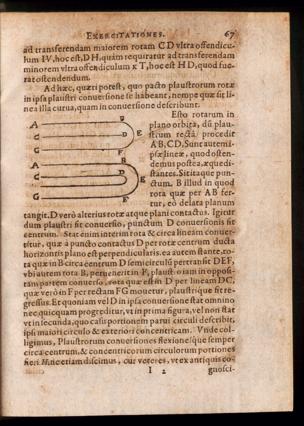 EXERCITATIONES. 67
ad transferendam maiorem rotam CD vltra offendicu-
lum IV, hoc est, DH, quàm requiratur ad transferendam
minorem vltra offendiculum x T, hoc est HD, quod fue-
rat ostendendum.
Ad hæc, quæri potest, quo pacto plaustrorum rotæ
in ipsa plaustri conuersione se habeant, nempe quæ sit li-
nea illa curua, quam in conuersione describunt.
Esto rotarum in
plano orbita, dũ plau-
strum rectà procedit
AB, CD. Sunt autem i-
psæ lineæ, quod osten-
demus postea, æquedi-
stantes. Sit itaque pun-
ctum B illud in quod
rota quæ per AB fer-
tur, eò delata planum
A B
C D E
G F
A B
C D E
G F
tangit. D verò alterius rotæ atque plani contactus. Igitur
dum plaustri fit conuersio, punctum D conuersionis fit
centrum. Stat enim interim rota & circa lineam conuer-
titur, quæ à puncto contactus D per rotæ centrum ducta
horizontis plano est perpendicularis. ea autem stante, ro-
ta quæ in B circa centrum D semicirculũ pertransit DEF,
vbi autem rota B, peruenerit in F, plaustro iam in opposi-
tam partem conuerso, rota quæ est in D per lineam DC,
quæ verò in F per rectam FG mouetur, plaustrique fit re-
gressus. Et quoniam vel D in ipsa conuersione stat omnino
nec quicquam progreditur, vt in prima figura, vel non stat
vt in secunda, quo casu portionem parui circuli describit,
ipsi maioris circulo & exteriori concentricam. Vnde col-
ligimus, Plaustrorum conuersiones flexionesque semper
circa centrum, & concentricorum circulorum portiones
fieri. Hinc etiam discimus, cur veteres, vt ex antiquis co-
I 2 gnosci-